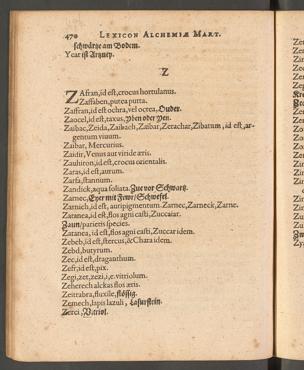 470 LEXICON ALCHEMIÆ MART.
schwärtze am Bodem.
Ycar ist Artzney.
Z
ZAfran, id est, crocus hortulanus.
Zaffaben, putea putta.
Zaffran, id est ochra, vel octea, Ouder.
Zaocel, id est, taxus, Yben oder Yen.
Zaibac, Zeida, Zaikach, Zaibar, Zerachar, Zibatum, id est, argentum viuum.
Zaibar, Mercurius.
Zaidir, Venus aut viride æris.
Zauhiron, id est, crocus orientalis.
Zaras, id est, aurum.
Zarfa, stannum.
Zandick, aqua foliata. Zue vor Schwartz.
Zarnec, Eyer mit Fewr/ Schwefel.
Zarnich, id est, auripigmentum. Zarnec, Zarneck, Zarne.
Zatanea, id est, flos agni casti, Zuccaiar.
Zaun/ parietis species.
Zatanea, id est, flos agni casti, Zuccar idem.
Zebeb, id est, stercus, & Chara idem.
Zebd, butyrum.
Zec, id est, draganthum.
Zefr, id est, pix.
Zegi, zet, zezi, i, e. vitriolum.
Zeherech alckas flos æris.
Zeitrabra, fluxile, flössig.
Zemech, lapis lazuli, Lasurstein.
Zerci, Vitriol.